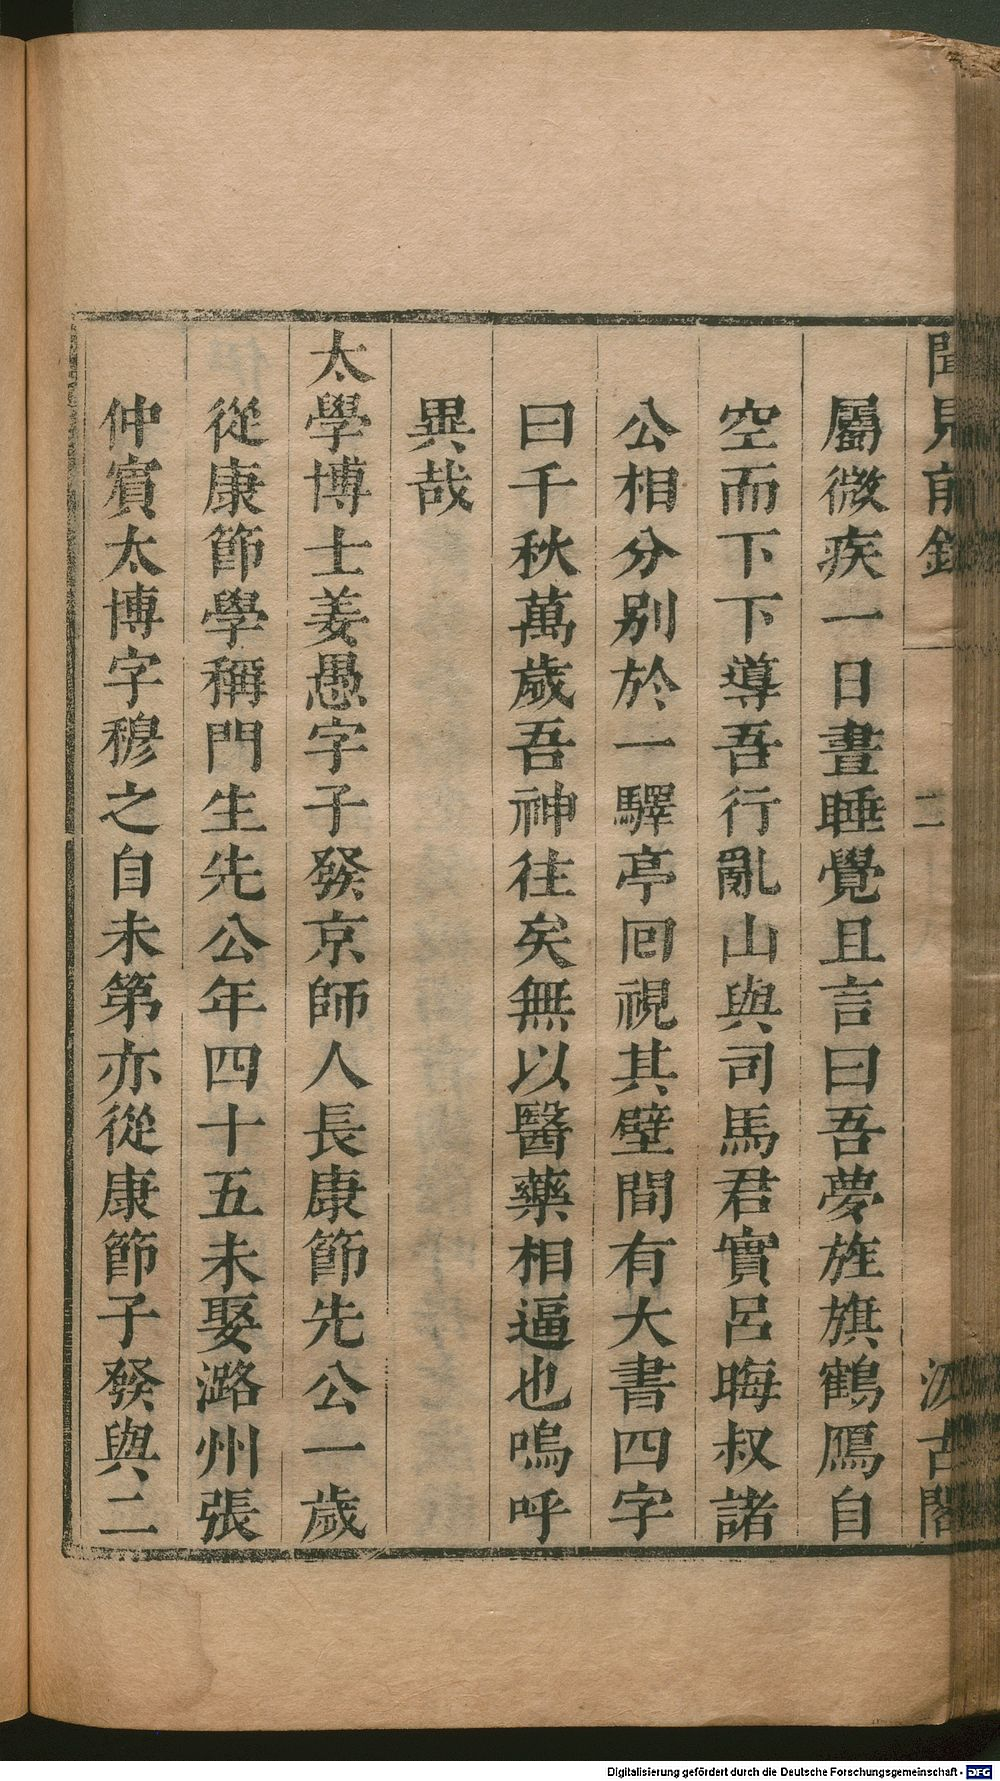 聞見前錄 二 汲古閣
屬微疾一日晝睡覺且言曰吾夢旌旗鶴鴈自
空而下下導吾行亂山與司馬君實呂晦叔諸
公相分別於一驛亭回視其壁間有大書四字
曰千秋萬歲吾神往矣無以醫藥相逼也嗚呼
異哉
太學博士姜愚字子發京師人長康節先公一歲
從康節學稱門生先公年四十五未娶潞州張
仲賔太博字穆之自未第亦從康節子發與二
Digitalisierung gefördert durch die Deutsche Forschungsgemeinschaft - DFG